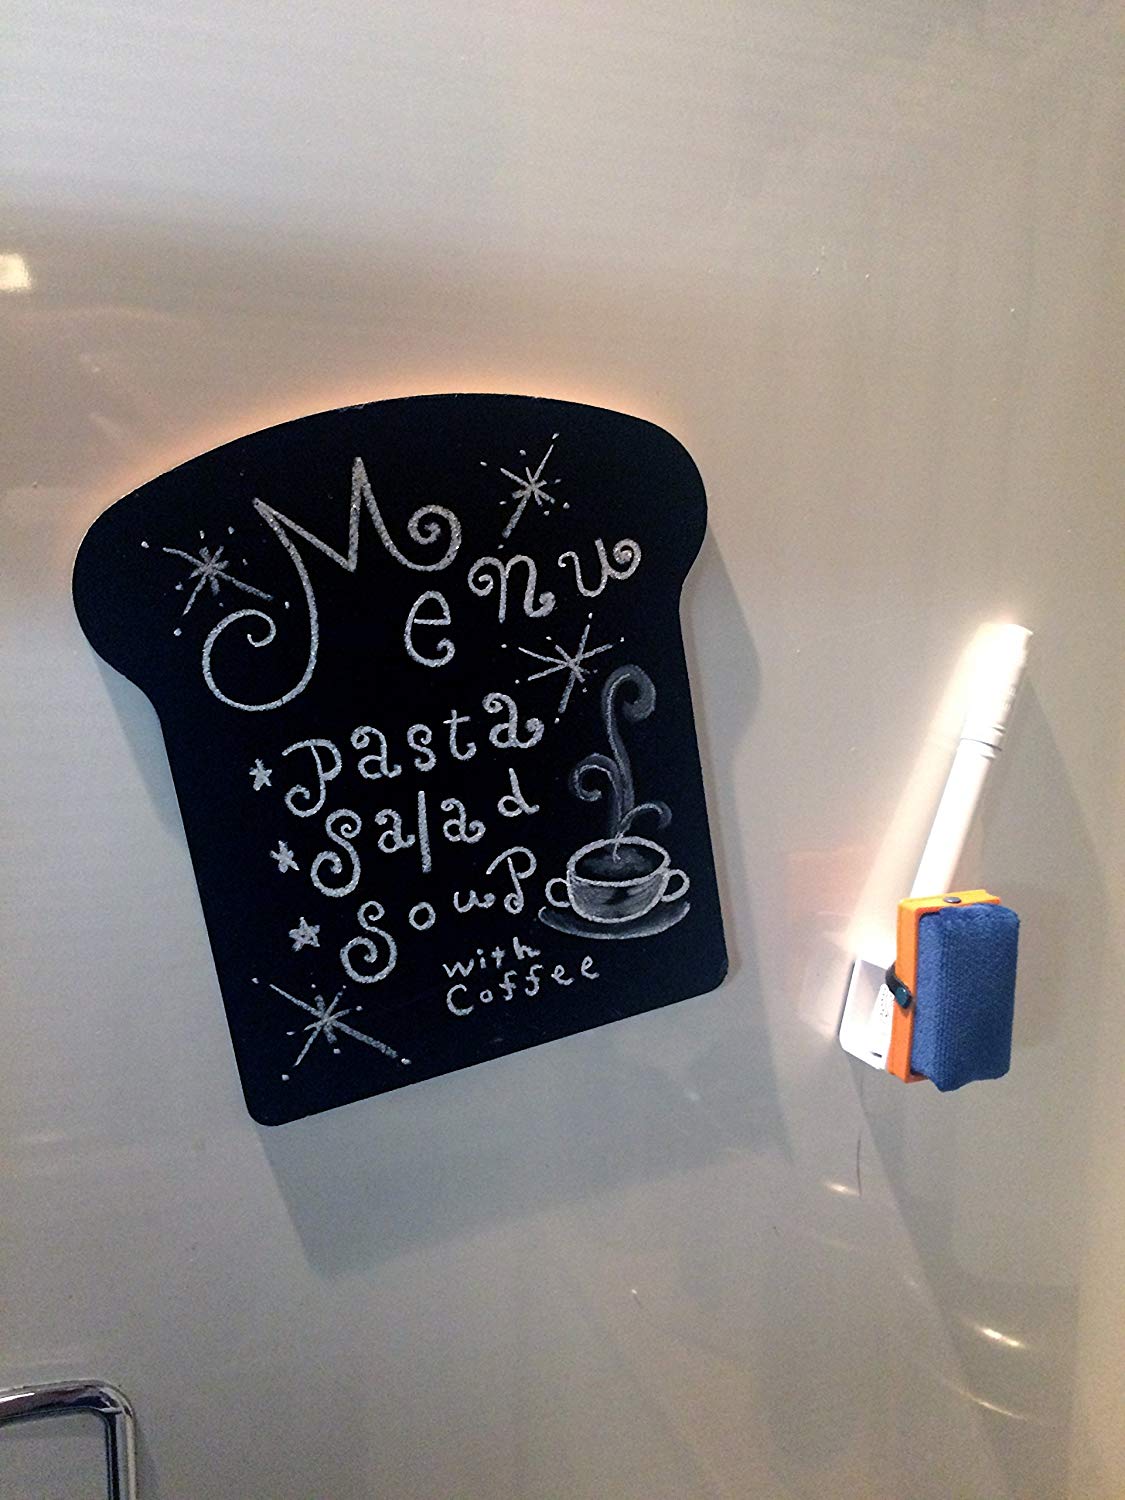 Menu
* Pasta
* Salad
* Soup
with
Coffee